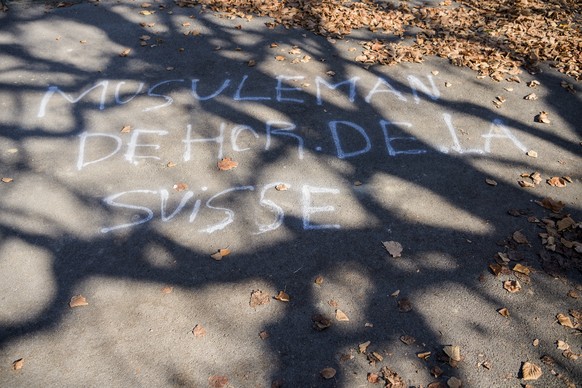 MUSULEMAN
DEHOR.DE.LA
SUISSE